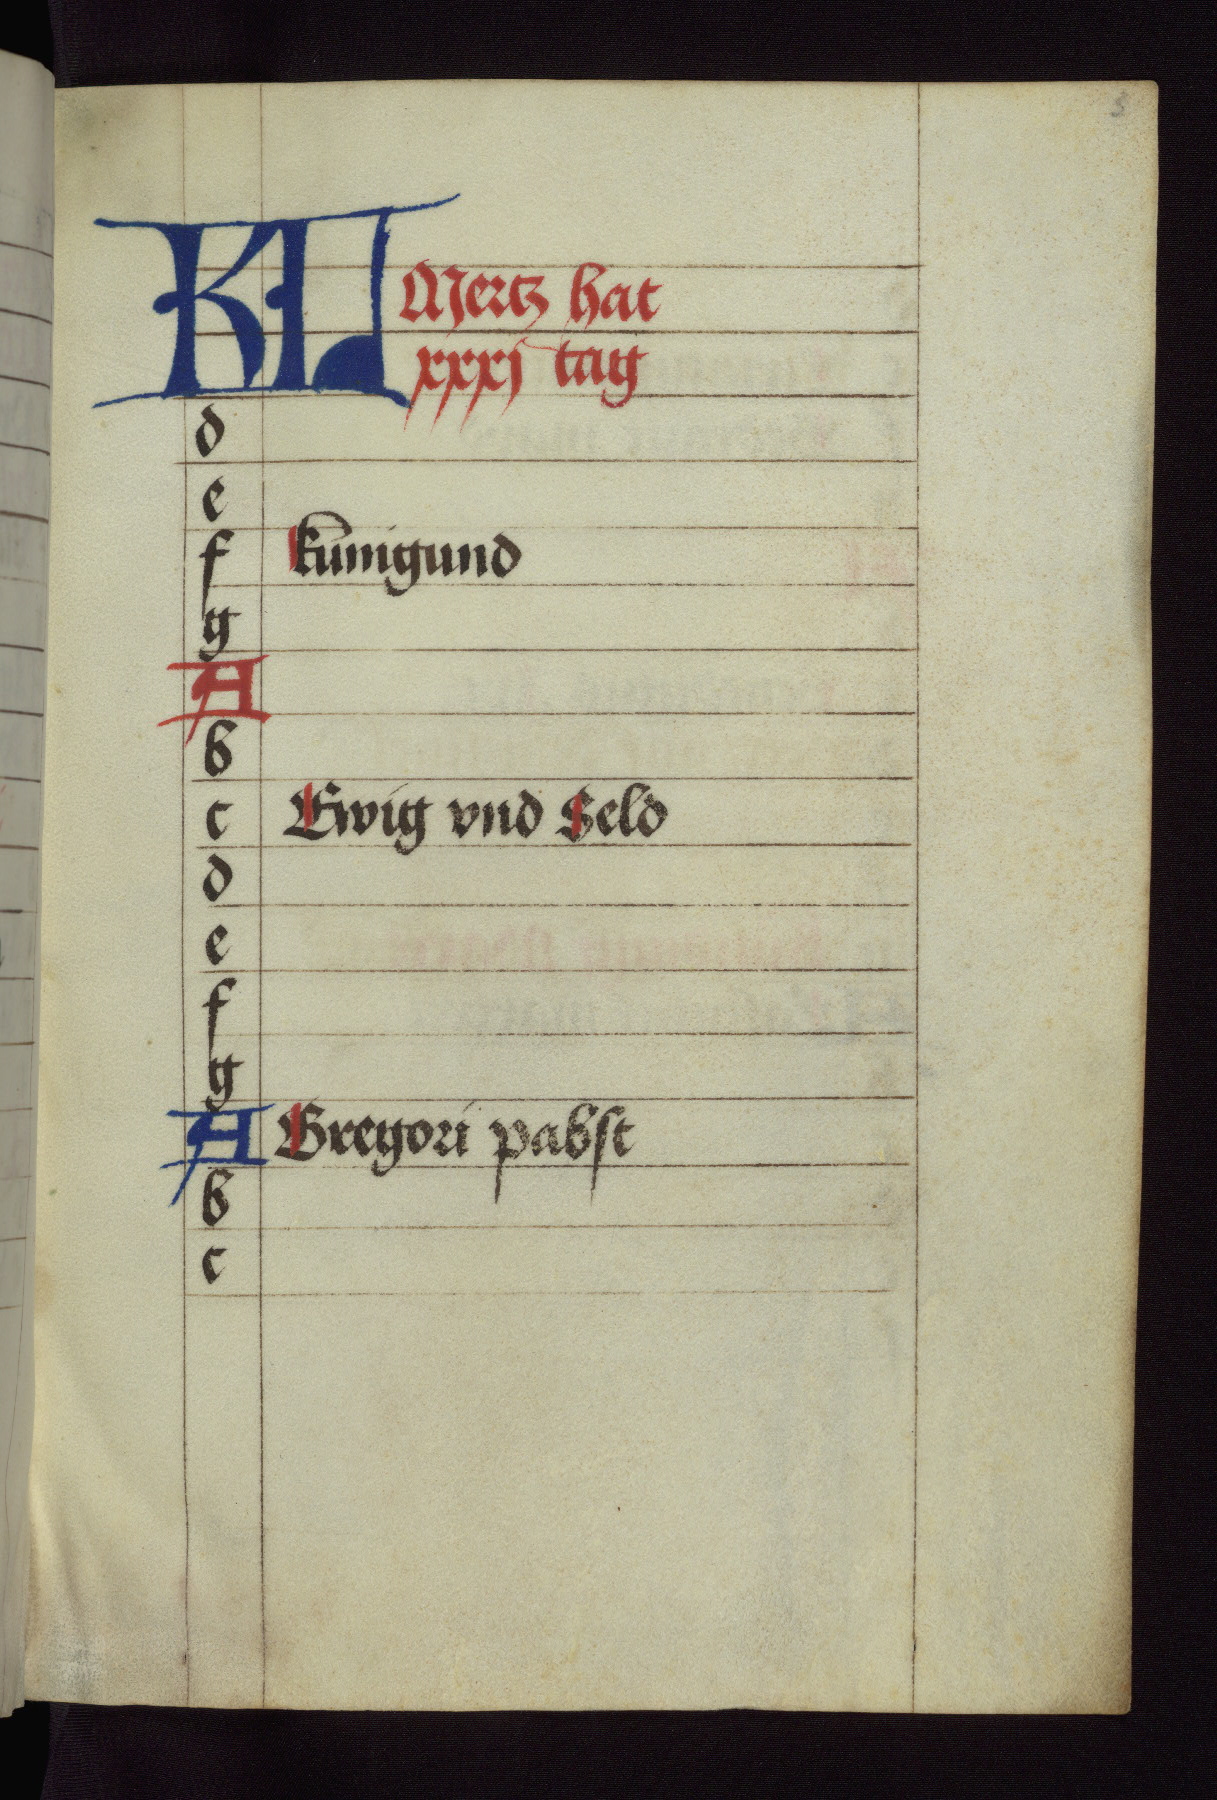 5
KL Mertz hat
xxxj tag
d
e
f kunigund
g
A
b
c Ewig vnd Seld
d
e
f
g
A Gregori pabst
b
c